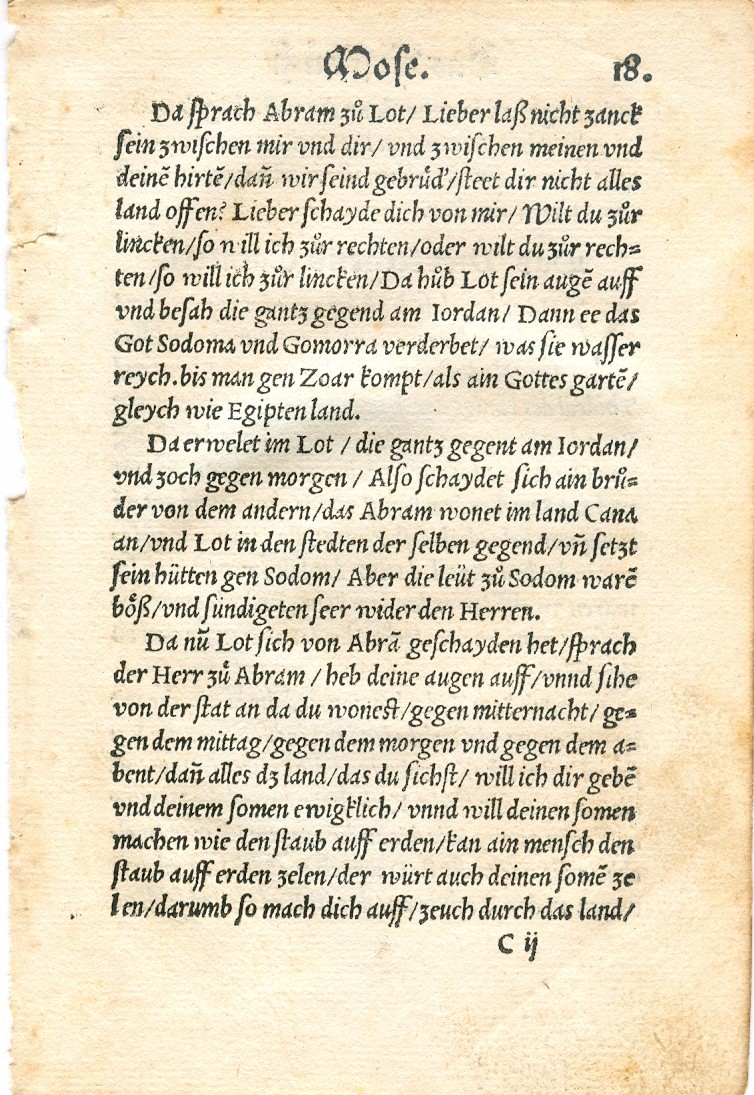 Mose. 18.
Da ſprach Abram zů Lot/ Lieber laß nicht zanck
ſein zwiſchen mir vnd dir/ vnd zwiſchen meinen vnd
deinẽ hirtẽ/dañ wir ſeind gebrůd'/ſteet dir nicht alles
land offen? Lieber ſchayde dich von mir/ Wilt du zůr
lincken/ſo will ich zůr rechten/oder wilt du zůr rech⸗
ten/ſo will ich zůr lincken/Da hůb Lot ſein augẽ auff
vnd beſah die gantz gegend am Iordan/ Dann ee das
Got Sodoma vnd Gomorra verderbet/ was ſie waſſer
reych.bis man gen Zoar kompt/als ain Gottes gartẽ/
gleych wie Egipten land.
Da erwelet im Lot / die gantz gegent am Iordan/
vnd zoch gegen morgen / Alſo ſchaydet ſich ain brů⸗
der von dem andern/das Abram wonet im land Cana
an/vnd Lot in den ſtedten der ſelben gegend/vñ ſetzt
ſein hütten gen Sodom/ Aber die leüt zů Sodom warẽ
boͤß/vnd ſündigeten ſeer wider den Herren.
Da nũ Lot ſich von Abrã geſchayden het/ſprach
der Herr zů Abram / heb deine augen auff/vnnd ſihe
von der ſtat an da du woneſt/gegen mitternacht/ ge⸗
gen dem mittag/gegen dem morgen vnd gegen dem a⸗
bent/dañ alles dz land/das du ſichſt/ will ich dir gebẽ
vnd deinem ſomen ewigklich/ vnnd will deinen ſomen
machen wie den ſtaub auff erden/kan ain menſch den
ſtaub auff erden zelen/der würt auch deinen ſomẽ ze
len/darumb ſo mach dich auff/zeuch durch das land/
C ij